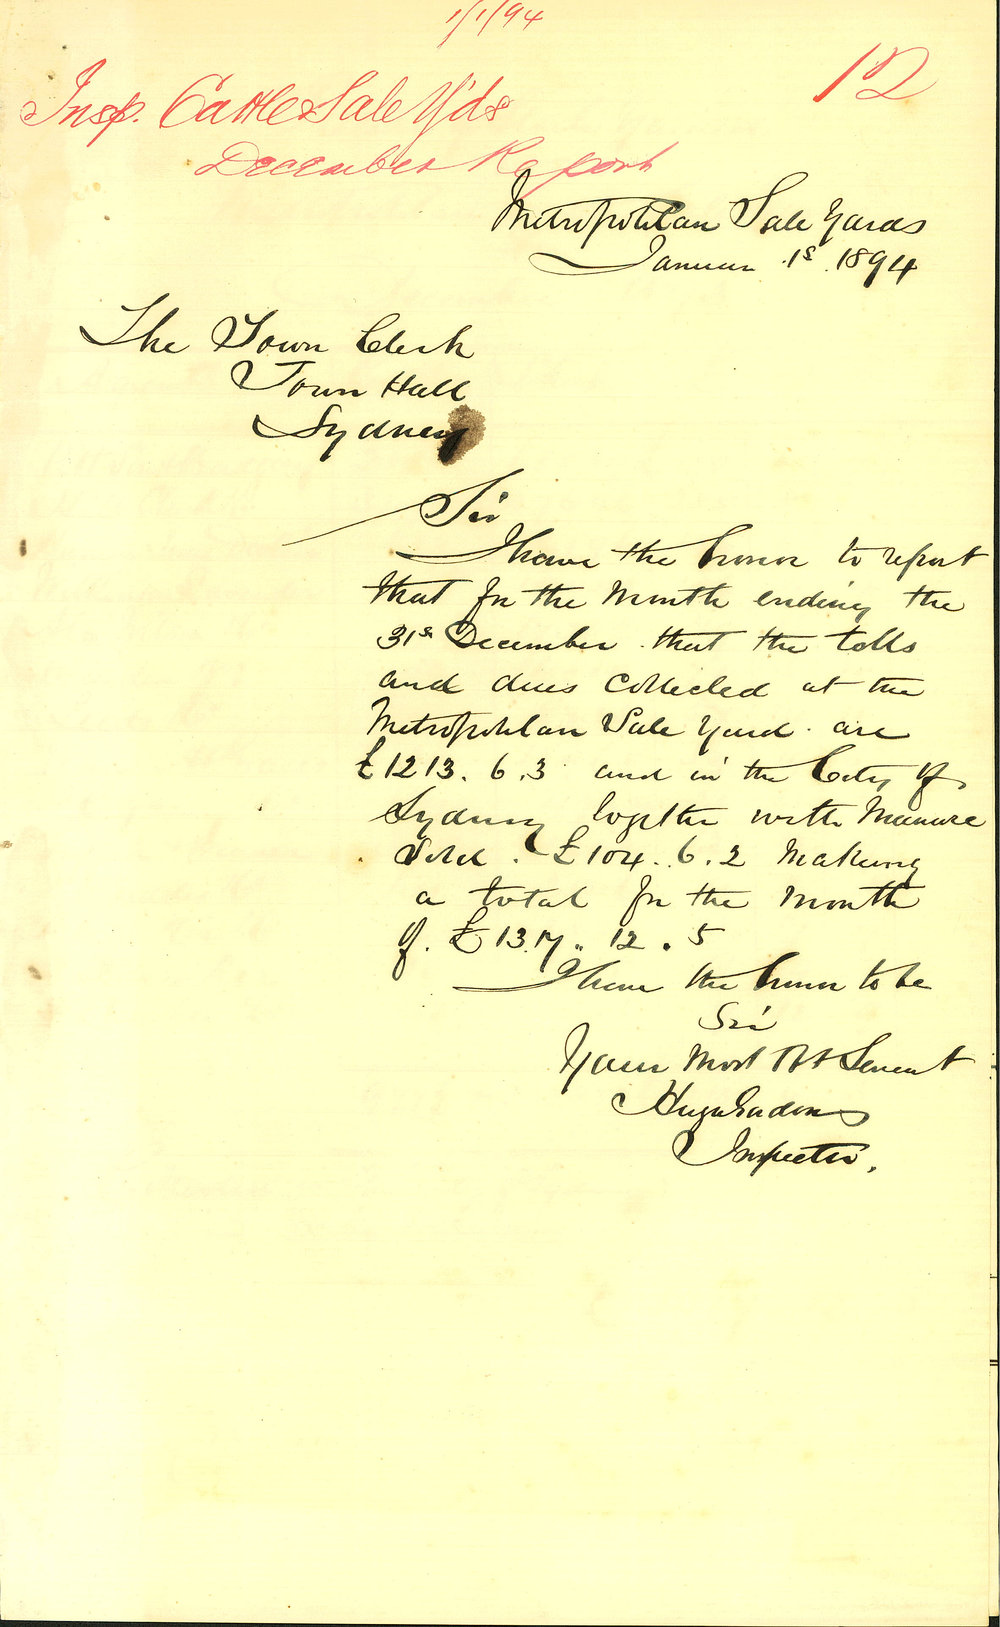 1/1/94
12
Insp. Cattle Sale Y'ds
December Report
Metropolitan Sale Yards
Januar 1s 1894
The Town Clerk
Town Hall
Sydney
Sir
I have the honor to report
that for the Month ending the
31st December that the tolls
and dues Collected at the
Metropolitan Sale Yard are
£1213. 6. 3 and in the City of
Sydney together with Manure
Sold. £104. 6. 2 Making
a total for the Month
of. £1317. 12. 5
I have the honor to be
Sir
Your Most Obt Servant
Inspector.